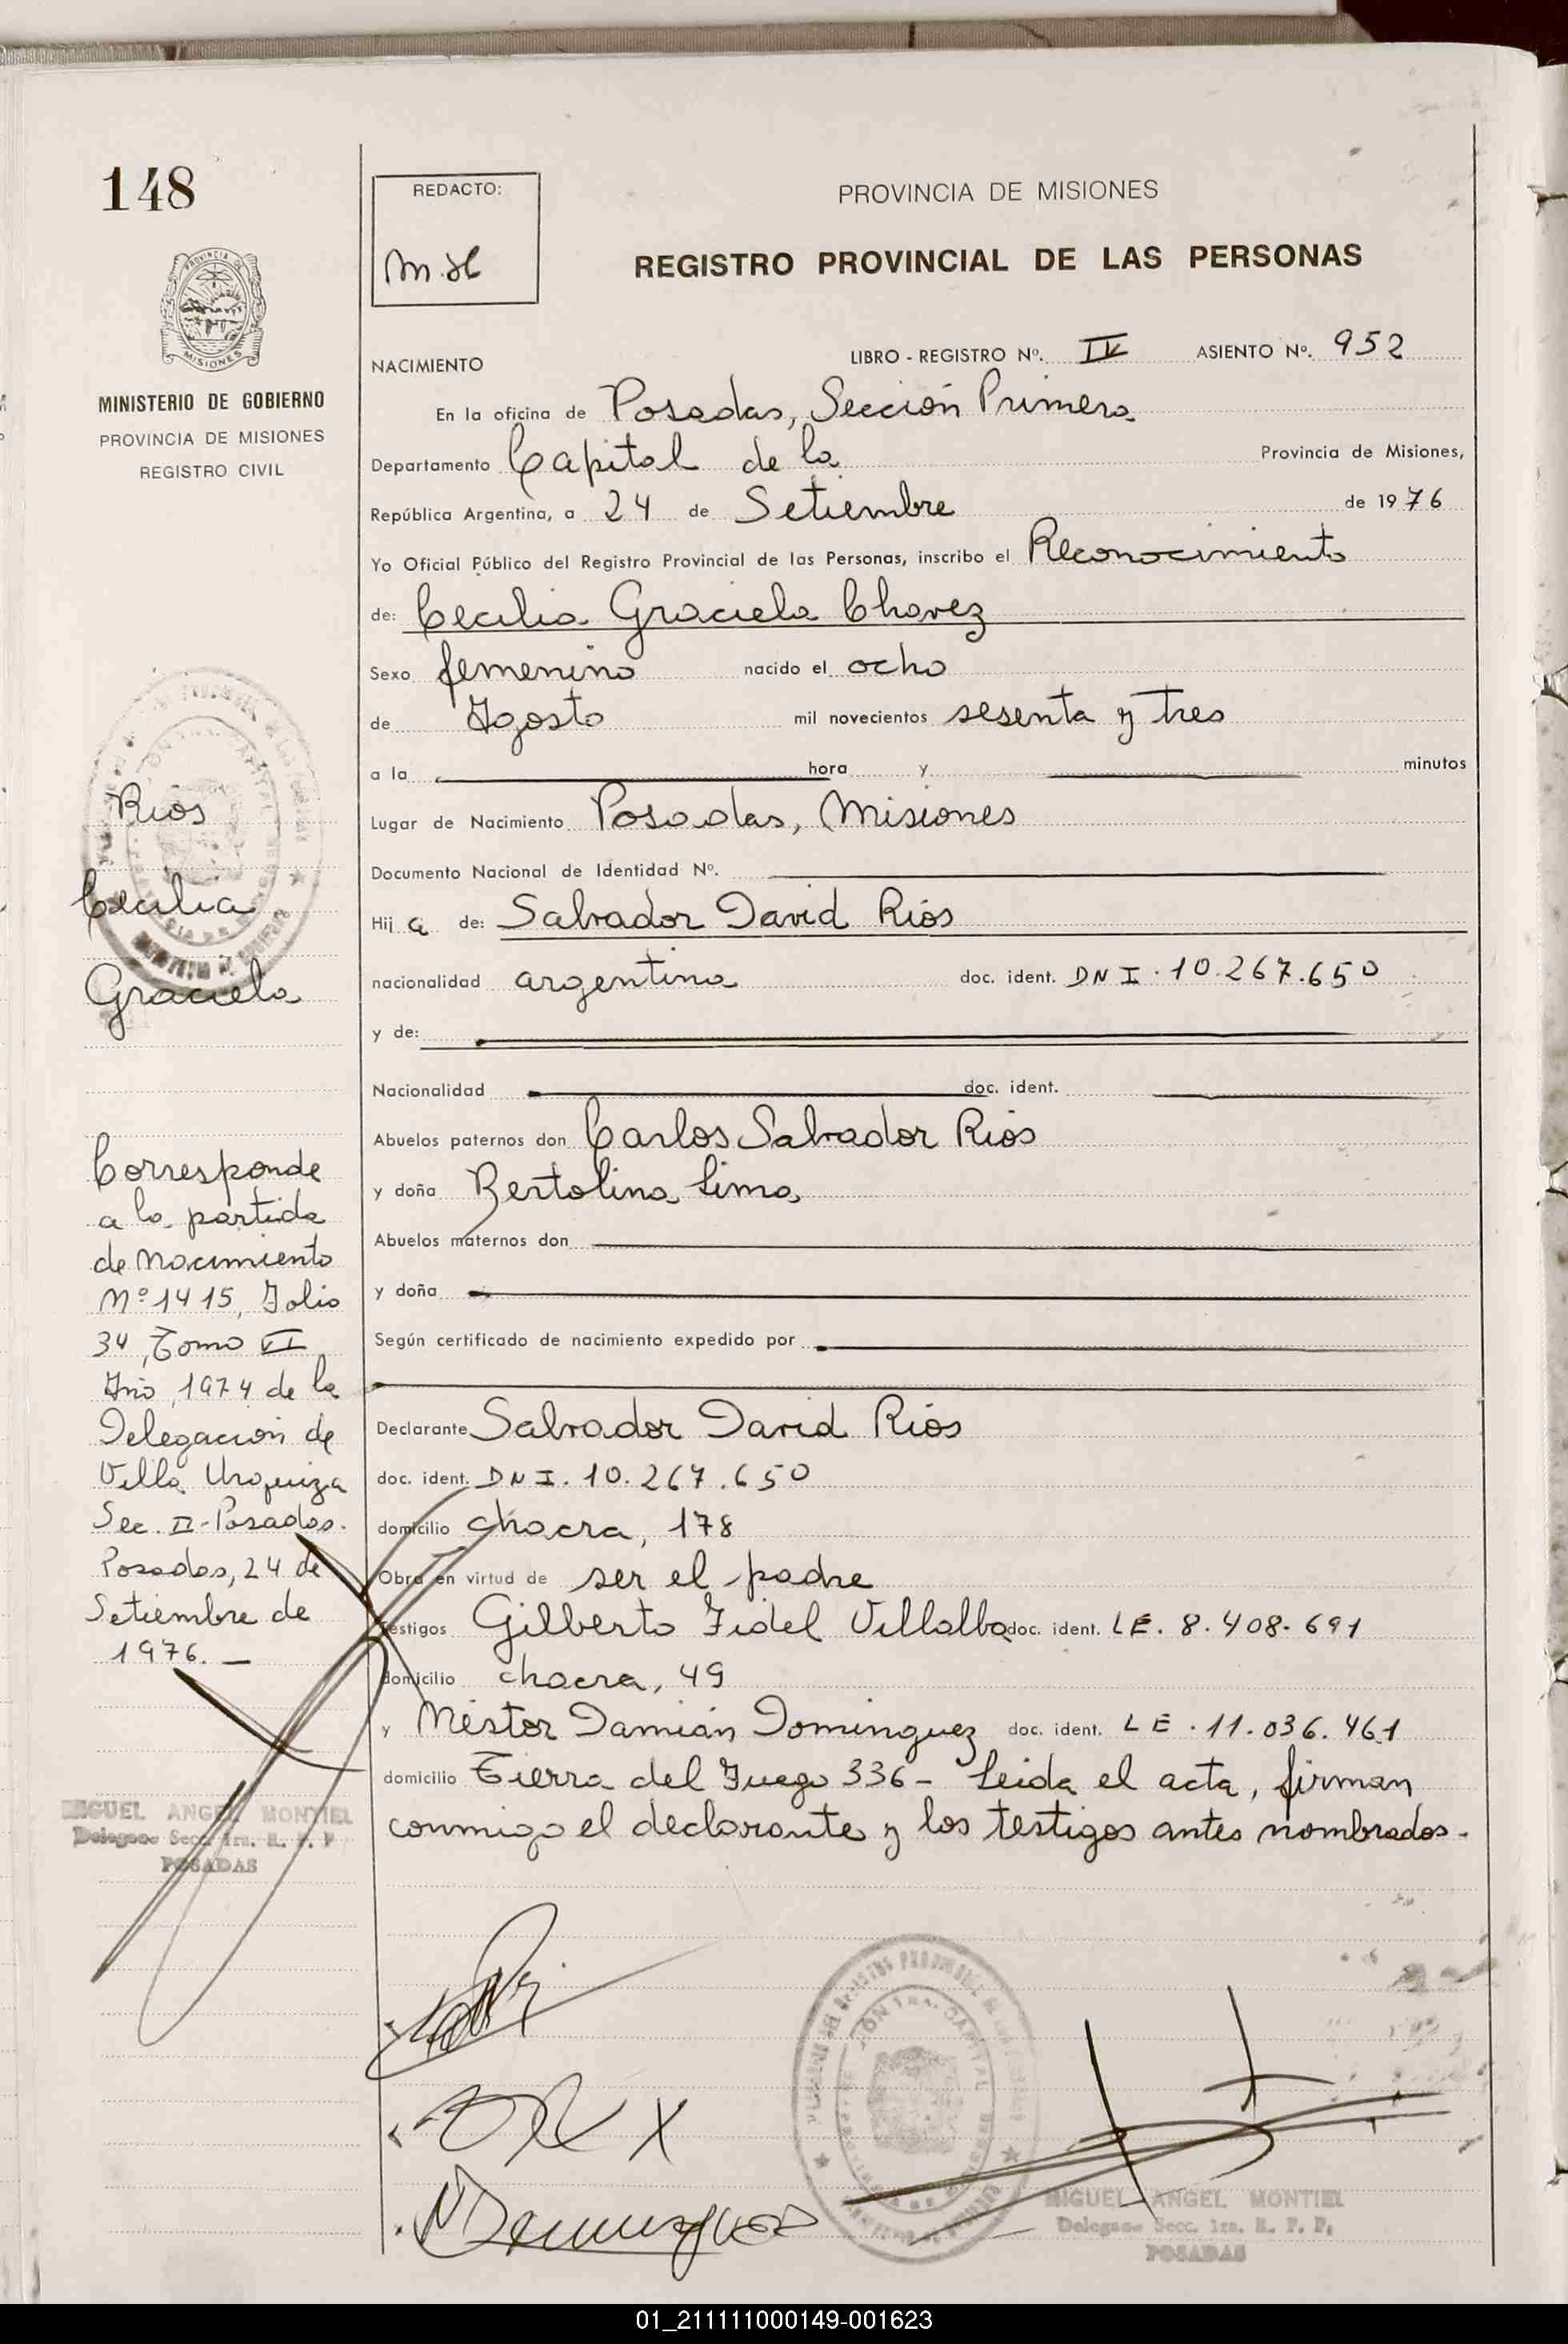 148
MINISTERIO DE GOBIERNO
PROVINCIA DE MISIONES
REGISTRO CIVIL
Ríos
Cecilia
Graciela
Corresponde
a la partida
de Nacimiento
Nº 1415, Folio
34, Tomo VI
Año 1974 de la
Delegación de
Villa Urquiza
Sec. II - Posadas.
Posadas, 24 de
Setiembre de
1976. —
MIGUEL ANGEL MONTIEL
Delegado Secc. 1ra. R. P. P.
POSADAS
REDACTO:
PROVINCIA DE MISIONES
REGISTRO PROVINCIAL DE LAS PERSONAS
NACIMIENTO LIBRO - REGISTRO Nº. IV ASIENTO Nº. 952
En la oficina de Posadas, Sección Primera
Departamento Capital de la Provincia de Misiones,
República Argentina, a 24 de Setiembre de 1976
Yo Oficial Público del Registro Provincial de las Personas, inscribo el Reconocimiento
de: Cecilia Graciela Chavez
Sexo femenino nacido el ocho
de Agosto mil novecientos sesenta y tres
a la hora y minutos
Lugar de Nacimiento Posadas, Misiones
Documento Nacional de Identidad Nº.
Hij a de: Salvador David Ríos
nacionalidad argentina doc. ident. DNI. 10.267.650
y de:
Nacionalidad doc. ident.
Abuelos paternos don Carlos Salvador Ríos
y doña Bertolina Lima
Abuelos maternos don
y doña
Según certificado de nacimiento expedido por
Declarante Salvador David Ríos
doc. ident. DNI. 10.267.650
domicilio chacra, 178
Obra en virtud de ser el padre
Testigos Gilberto Fidel Villalba doc. ident. LE. 8.408.691
domicilio chacra, 49
y Néstor Damián Dominguez doc. ident. LE. 11.036.461
domicilio Tierra del Fuego 336 - Leida el acta, firman
conmigo el declarante y los testigos antes nombrados.
MIGUEL ANGEL MONTIEL
Delegado Secc. 1ra. R. P. P.
POSADAS
01_211111000149-001623